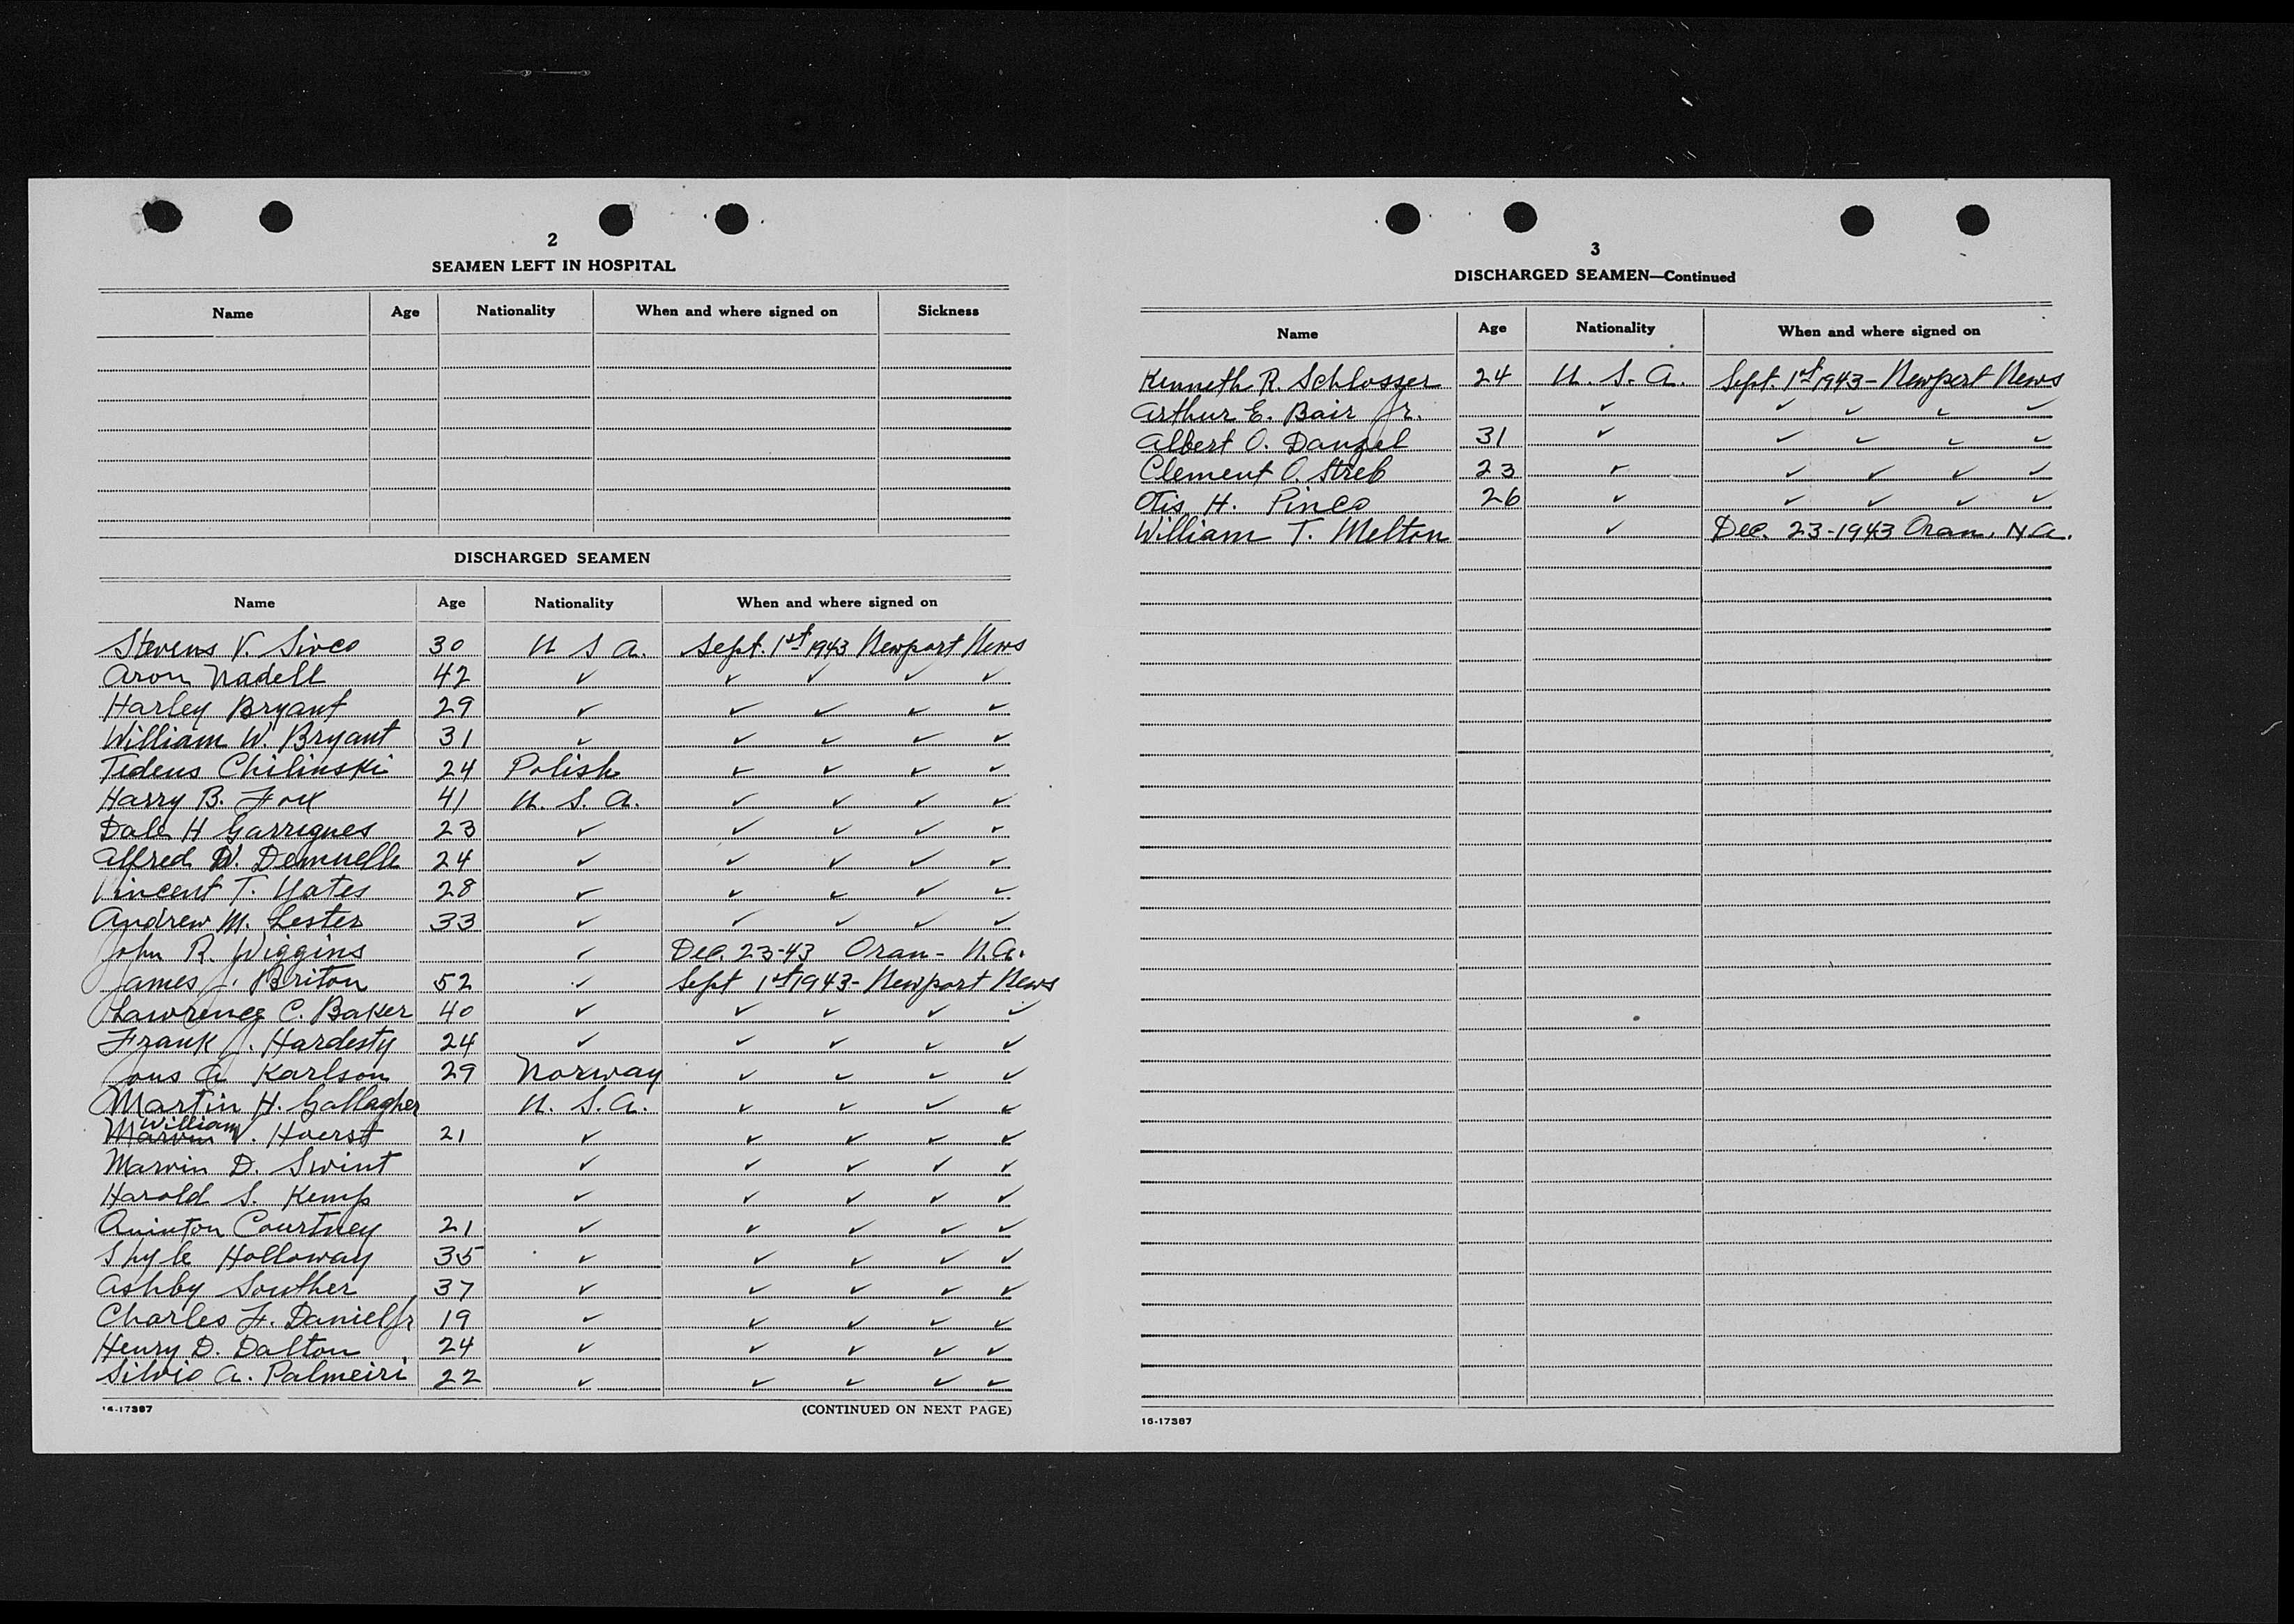 2
SEAMEN LEFT IN HOSPITAL
Name Age Nationality When and where signed on Sickness
DISCHARGED SEAMEN
Name Age Nationality When and where signed on
Stevens V. Sivco 30 U S A. Sept. 1st 1943 Newport News
Aron Nadell 42 ✓ ✓ ✓ ✓ ✓
Harley Bryant 29 ✓ ✓ ✓ ✓ ✓
William W. Bryant 31 ✓ ✓ ✓ ✓ ✓
Tedeus Chilinski 24 Polish ✓ ✓ ✓ ✓
Harry B. Fox 41 U. S. A. ✓ ✓ ✓ ✓
Dale H Garrigues 23 ✓ ✓ ✓ ✓ ✓
Alfred W. Demuelle 24 ✓ ✓ ✓ ✓ ✓
Vincent T. Yates 28 ✓ ✓ ✓ ✓ ✓
Andrew M. Lester 33 ✓ ✓ ✓ ✓ ✓
John R. Wiggins ✓ Dec. 23-43 Oran - N.A.
James J. Briton 52 ✓ Sept 1st 1943 - Newport News
Lawrence C. Baker 40 ✓ ✓ ✓ ✓ ✓
Frank J. Hardesty 24 ✓ ✓ ✓ ✓ ✓
Jons A Karlson 29 Norway ✓ ✓ ✓ ✓
Martin H. Gallagher U. S. A. ✓ ✓ ✓ ✓
William
Marvin V. Hoerst 21 ✓ ✓ ✓ ✓ ✓
Marvin D. Swint ✓ ✓ ✓ ✓ ✓
Harold S. Kemp ✓ ✓ ✓ ✓ ✓
Quinton Courtney 21 ✓ ✓ ✓ ✓ ✓
Holloway 35 ✓ ✓ ✓ ✓ ✓
Ashby Souther 37 ✓ ✓ ✓ ✓ ✓
Charles F. Daniel Jr 19 ✓ ✓ ✓ ✓ ✓
Henry D. Dalton 24 ✓ ✓ ✓ ✓ ✓
Silvio A. Palmeiri 22 ✓ ✓ ✓ ✓ ✓
16-17387 (CONTINUED ON NEXT PAGE)
3
DISCHARGED SEAMEN—Continued
Name Age Nationality When and where signed on
Kenneth R. Schlosser 24 U. S. A. Sept. 1st 1943 - Newport News
Arthur E. Bair Jr. ✓ ✓ ✓ ✓ ✓
Albert O. Dangel 31 ✓ ✓ ✓ ✓ ✓
Clement O. Streb 23 ✓ ✓ ✓ ✓ ✓
Otis H. Pinco 26 ✓ ✓ ✓ ✓ ✓
William T. Melton ✓ Dec. 23-1943 Oran, N.A.
16-17387